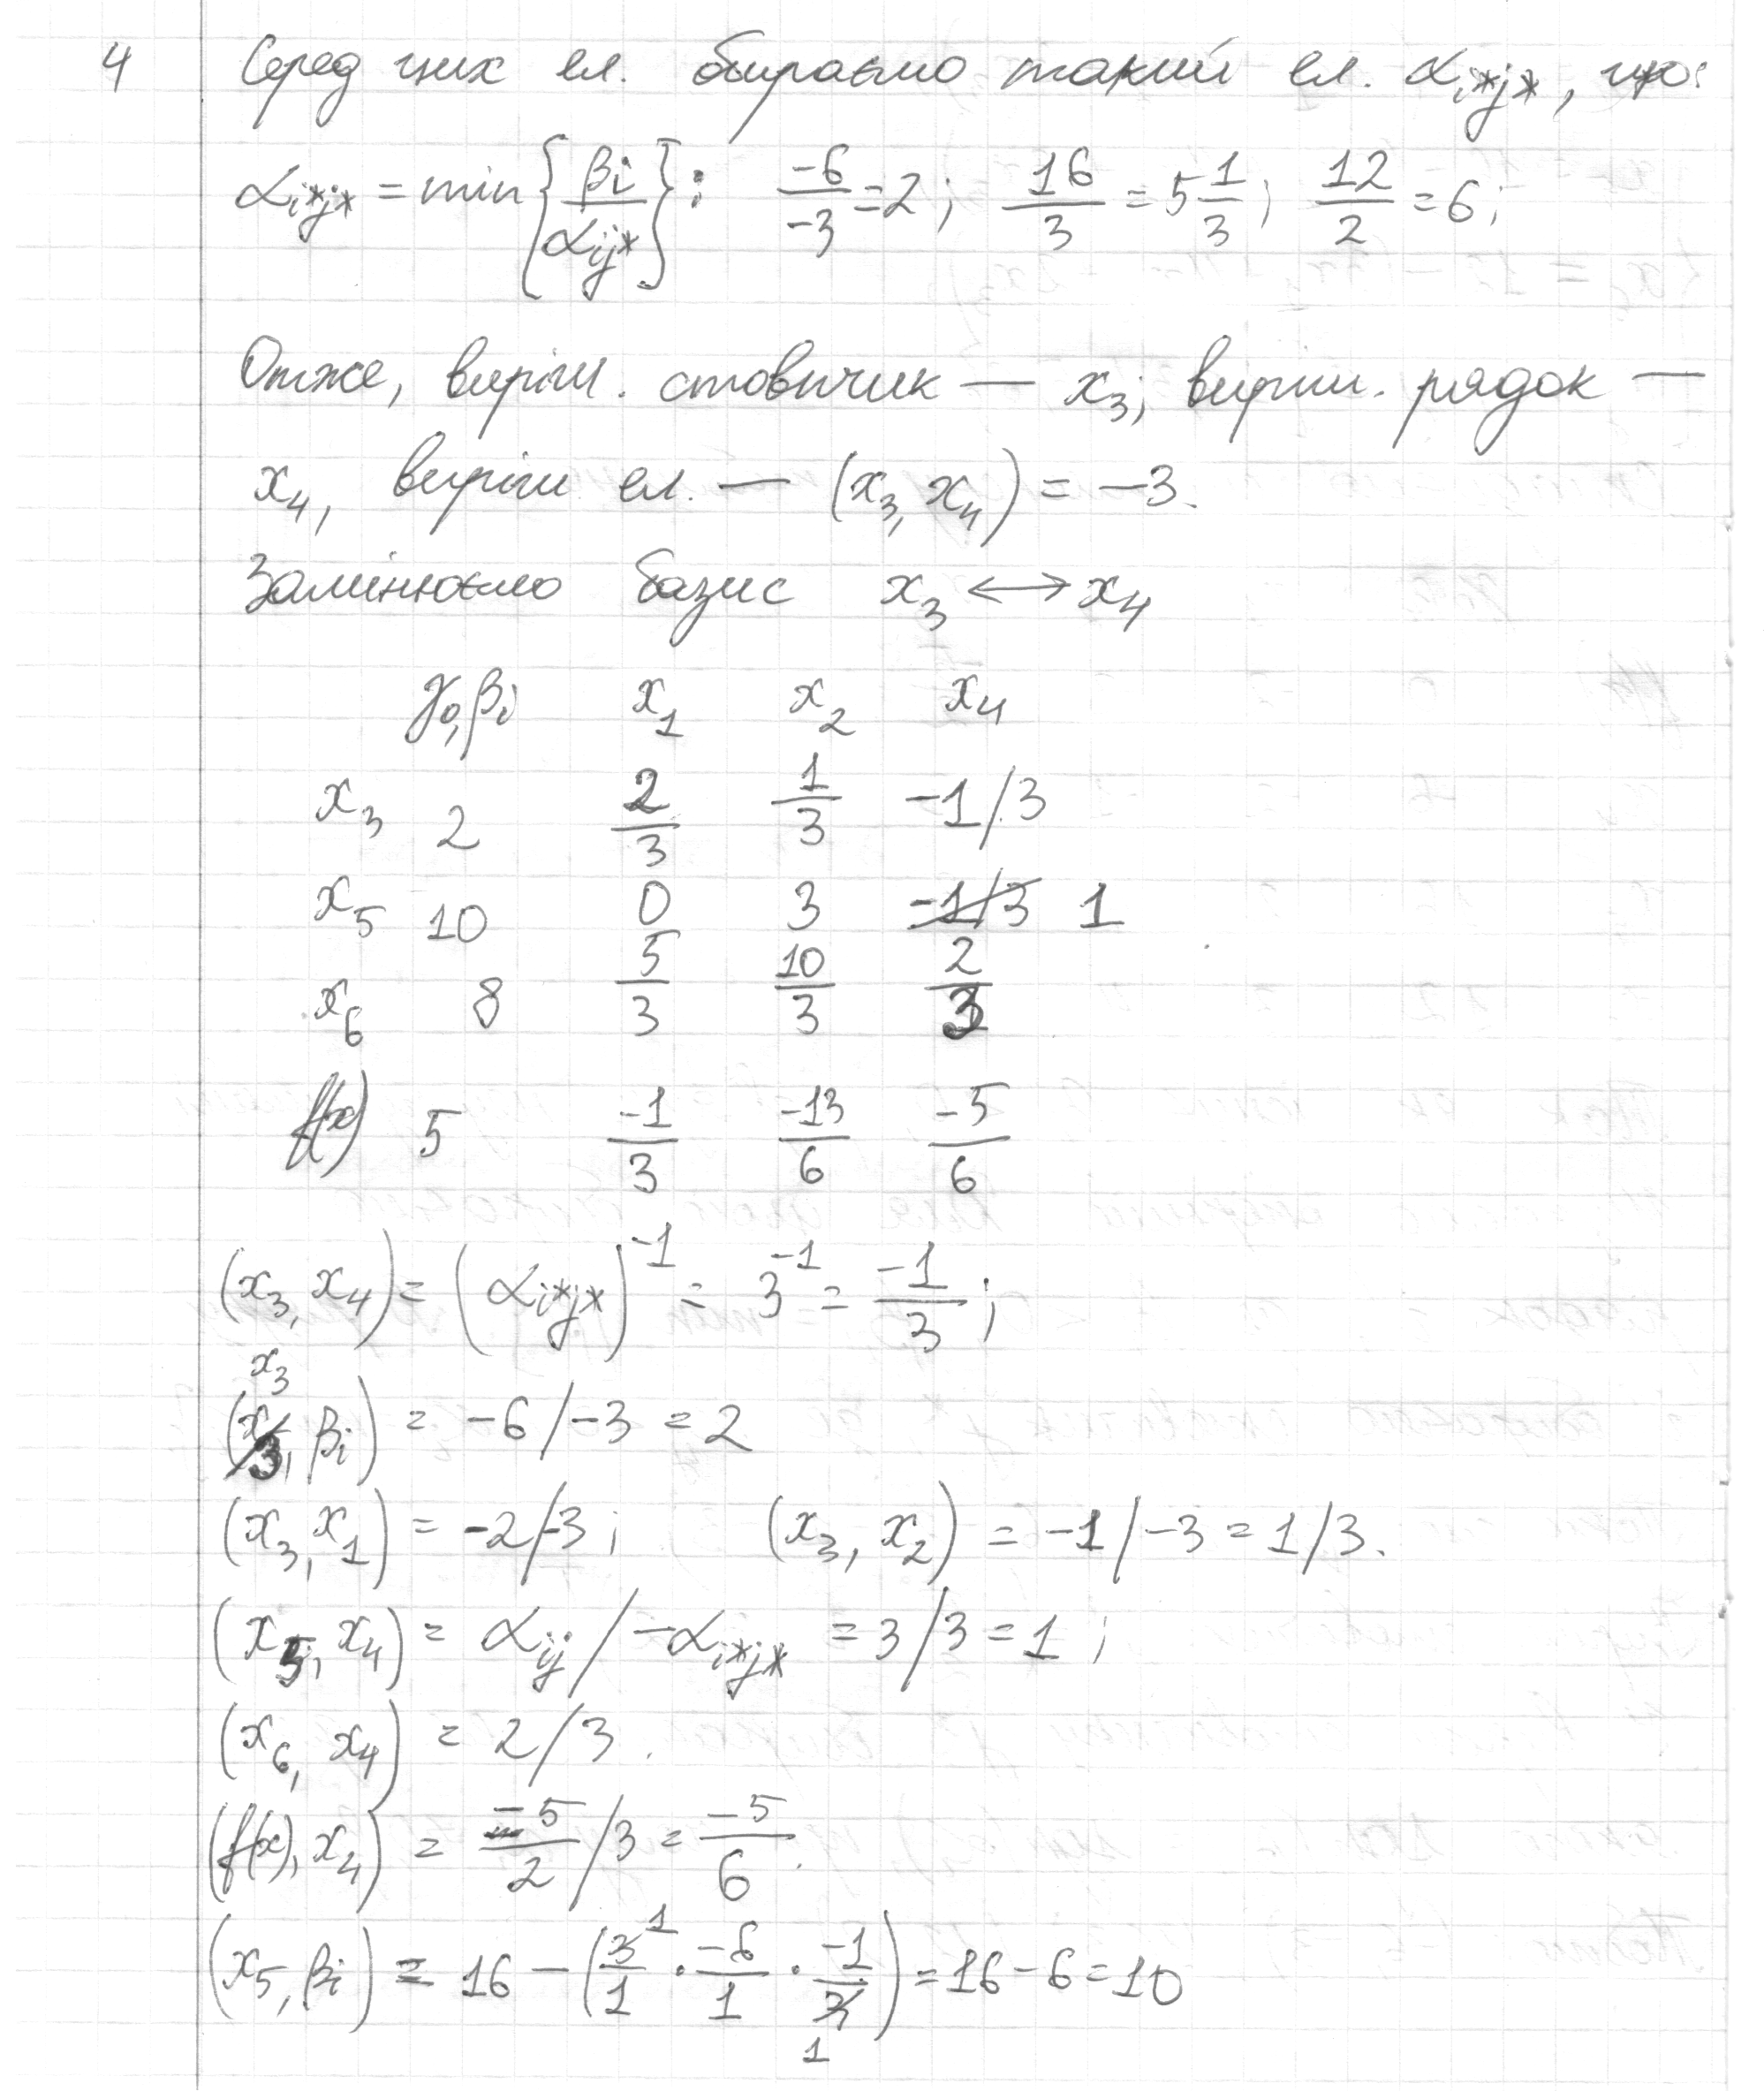 4
Серед цих ел. обираємо такий ел. α_{i*j*}, що:
α_{i*j*} = min {β_i / α_{ij*}} : -6/-3 = 2; 16/3 = 5 1/3; 12/2 = 6;
Отже, виріш. стовпчик — x_3; виріш. рядок —
x_4, виріш ел. — (x_3, x_4) = -3.
Замінюємо базис x_3 ↔ x_4
γ_0, β_i x_1 x_2 x_4
x_3 2 2/3 1/3 -1/3
x_5 10 0 3 -1/3 1
x_6 8 5/3 10/3 2/3
f(x) 5 -1/3 -13/6 -5/6
(x_3, x_4) = (α_{i*j*})^{-1} = 3^{-1} = -1/3;
x_3
(x_3, β_i) = -6/-3 = 2
(x_3, x_1) = -2/-3; (x_3, x_2) = -1/-3 = 1/3.
(x_5, x_4) = α_{ij} / -α_{i*j*} = 3/3 = 1;
(x_6, x_4) = 2/3.
(f(x), x_4) = -5/2 /3 = -5/6.
(x_5, β_i) = 16 - (3/1 · -6/1 · -1/3) = 16 - 6 = 10